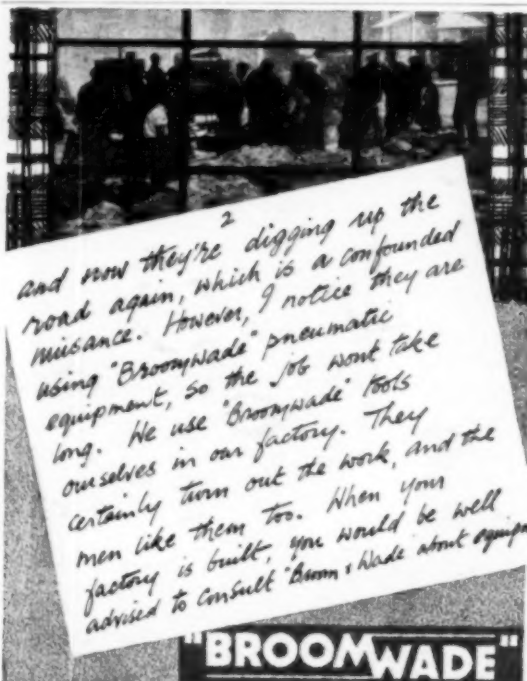 2
and now they're digging up the
road again, which is a confounded
nuisance. However, I notice they are
using "Broomwade" pneumatic
equipment, so the job wont take
long. We use "Broomwade" tools
ourselves in our factory. They
certainly turn out the work, and the
men like them too. When your
factory is built, you would be well
advised to consult "Broom & Wade" about equipm
"BROOMWADE"